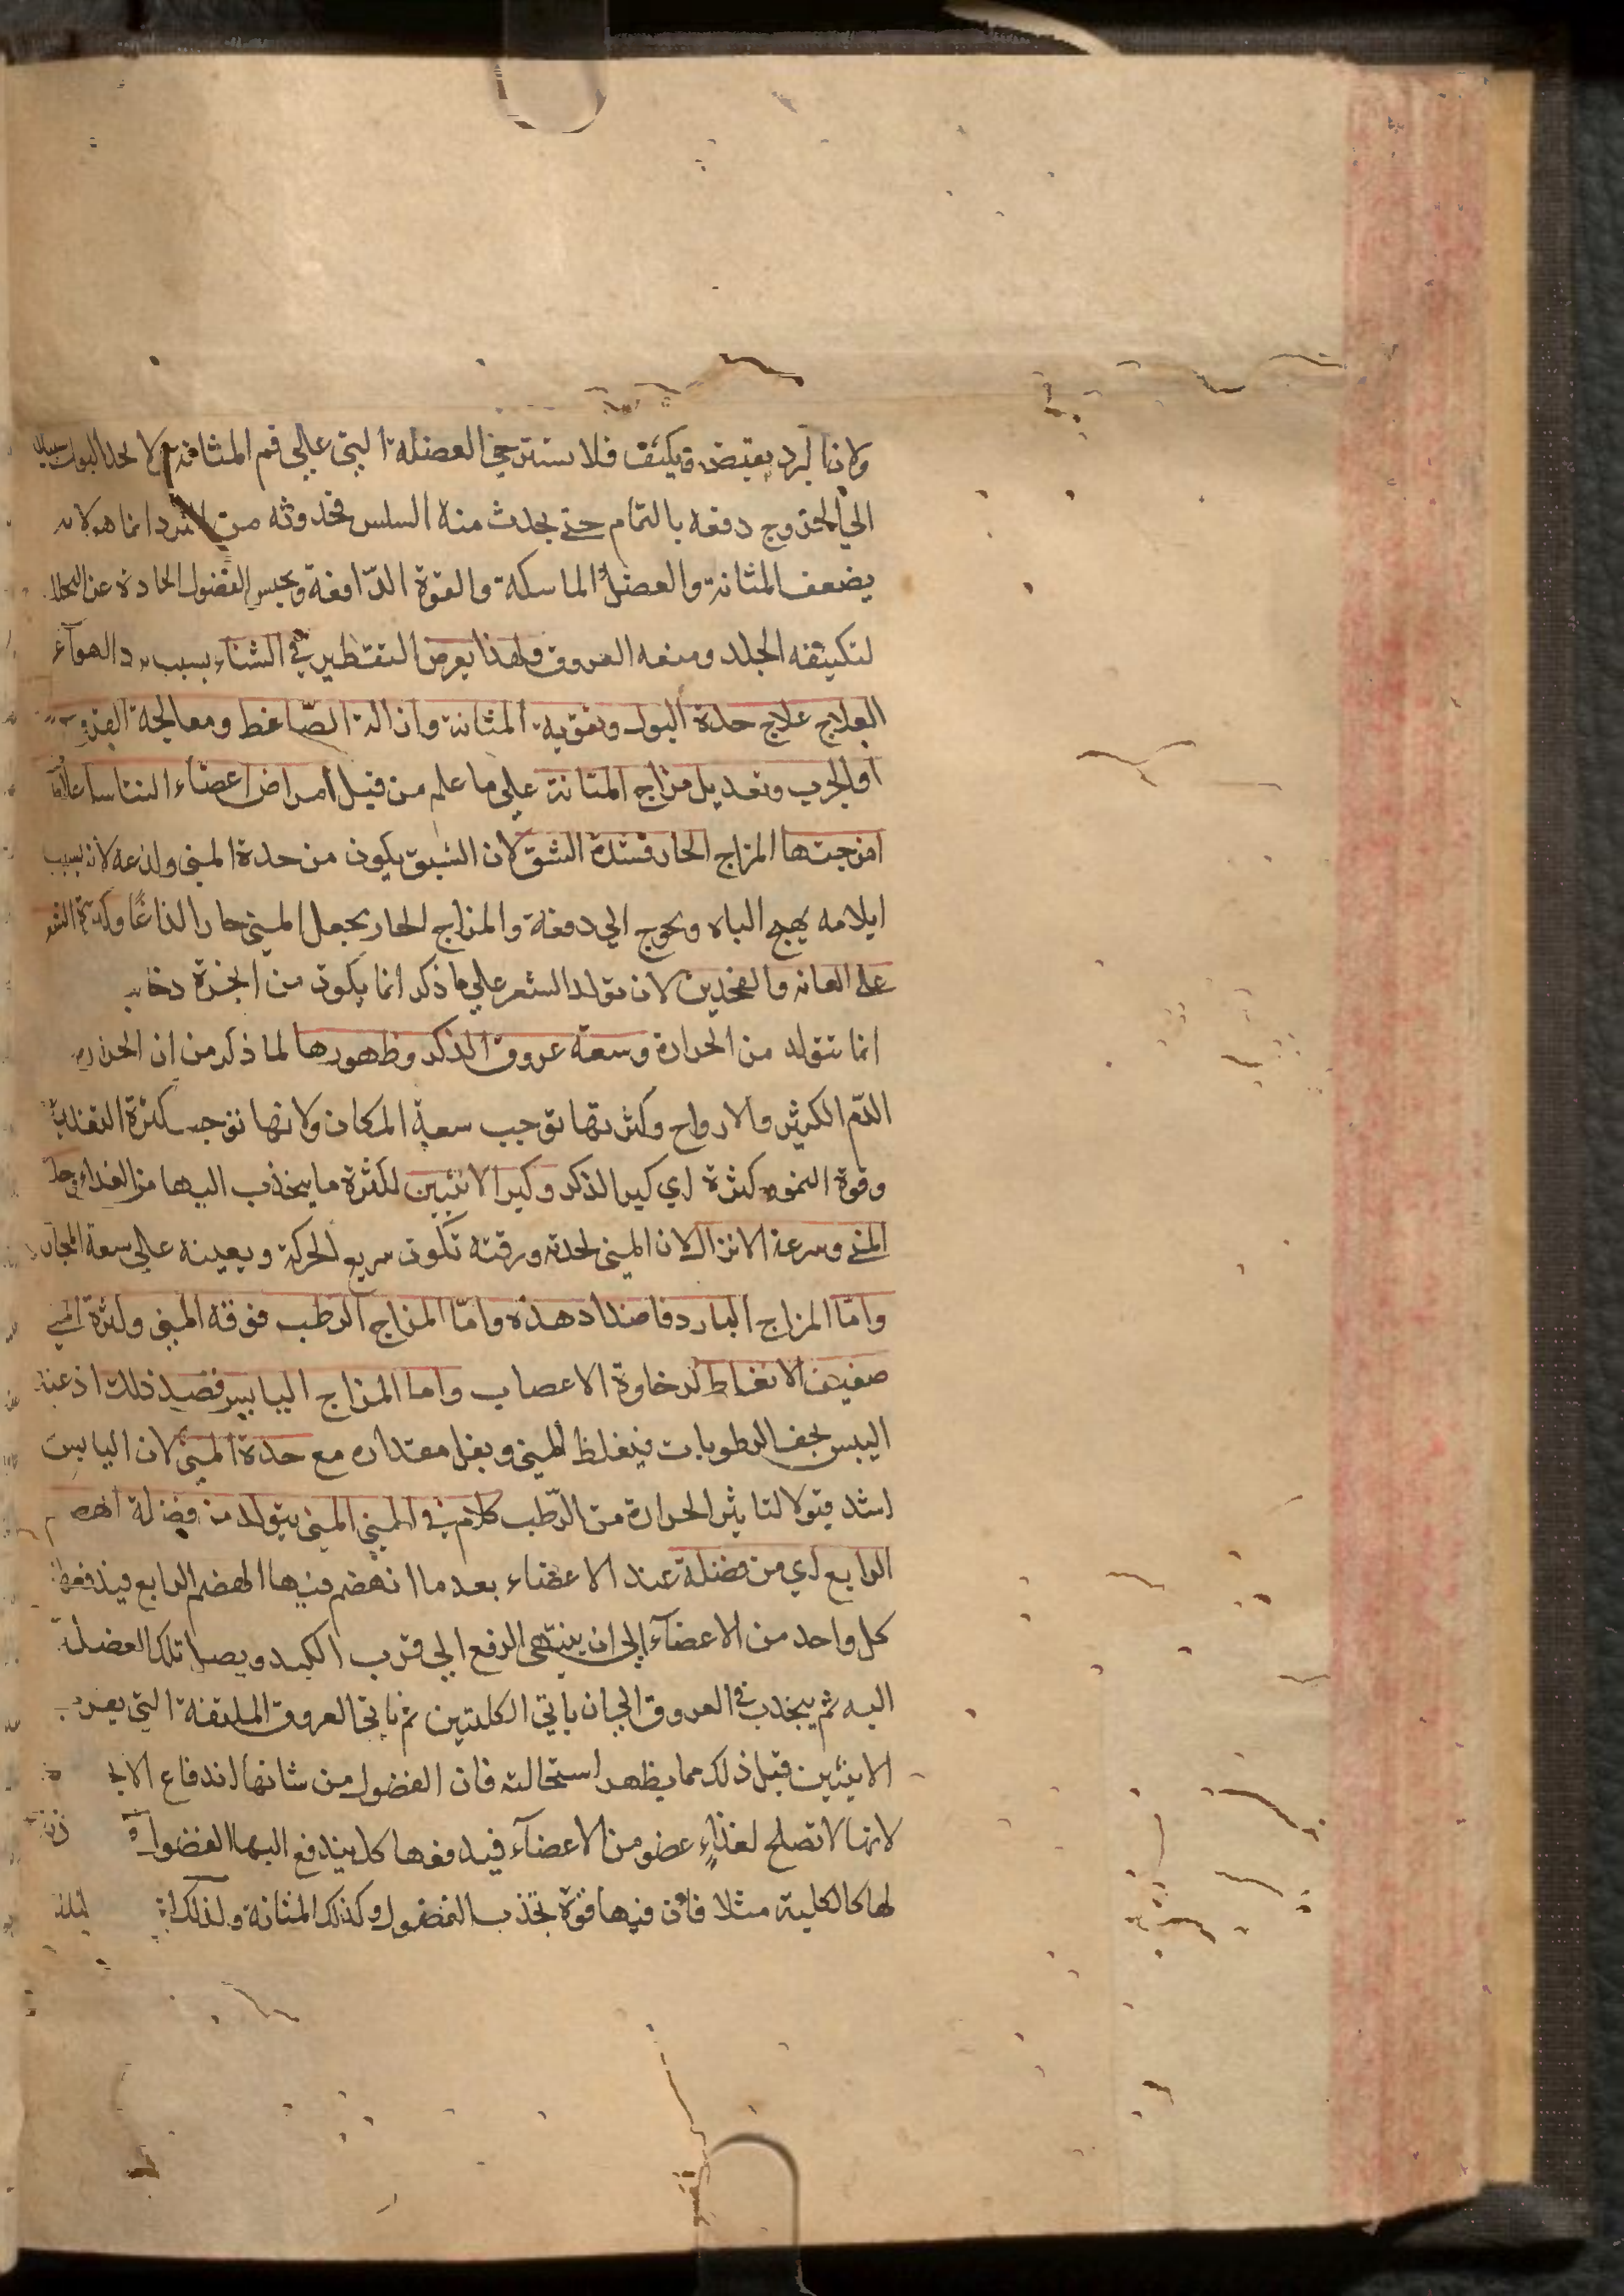 ولان البرد يقبض ويكثف فلا تسترخي العضلة التي علي فم المثانة ولا يحد البول سبيلا
الي الخروج دفعه بالتمام حتى يحدث منه السلس فحدوثه من البرد انما هو لانه
يضعف المثانة والعضل الماسكة والقوة الدّافعة ويحبس الفضول الحادة عن التحلل
لتكثيفه الجلد ومنعه العروق ولهذا يعرض التقطير في الشتاء بسبب برد الهوآء
العلاج علاج حدة البول وتقوية المثانة وازالة الضّاغط ومعالجة القروح
او الجرب وتعديل مزاج المثانة علي ما علم من قبل امراض اعضاء التناسل علامة
امزجتها المزاج الحار فشدة الشبق لان الشبق يكون من حدة المني ولذعه لانه بسبب
ايلامه يهيج الباه ويحوج الي دفعه والمزاج الحار يجعل المني حارا لذاعًا وكثرة الشعر
علي العانه والفخدين لان تولد الشعر علي ما ذكر انما يكون من ابخرة دخانيه
انما تتولد من الحرارة وسعة عروق الذكر وظهورها لما ذكر من ان الحرارة
الدّم الكثير والارواح وكثرتها توجب سعة المكان ولانها توجب كثرة التغذية
وقوة النمو كثرة اي كبر الذكر وكبر الانثيين لكثرة ما ينجذب اليها من الغذاء
المني وسرعة الانزال لان المني لحدته ورقته تكون سريع الحركة ويعينه علي سعة المجاري
وامّا المزاج البارد فاضداد هذه وامّا المزاج الرطب فرقة المني وكثرة المني
ضعيف الانعاظ لرخاوة الاعصاب واما المزاج اليابس فضد ذلك اذ عند
اليبس يجف الرطوبات فيغلظ المني ويقل مقداره مع حدة المني لان اليابس
اشد قبولا لتاثير الحرارة من الرّطب كلام في المني المني يتولد من فضلة الهضم
الرابع اي من فضلة عند الاعضاء بعد ما انهضم فيها الهضم الرابع فيدفعها
كل واحد من الاعضآء الي ان ينتهي الدفع الي قرب الكبد ويصل تلك الفضلة
اليه ثم ينجذب في العروق الي ان ياتي الكليتين ثم ياتي العروق الملتفة التي بقرب
الانثيين قبل ذلك مما يظهر استحالته فان الفضول من شانها اندفاع الا
لانها لا تصلح لغذاء عضو من الاعضآء فيدفعها كل يندفع اليها الفضول
لها كالكلية مثلا فان فيها قوة تجذب الفضول وكذلك المثانة ولذلك